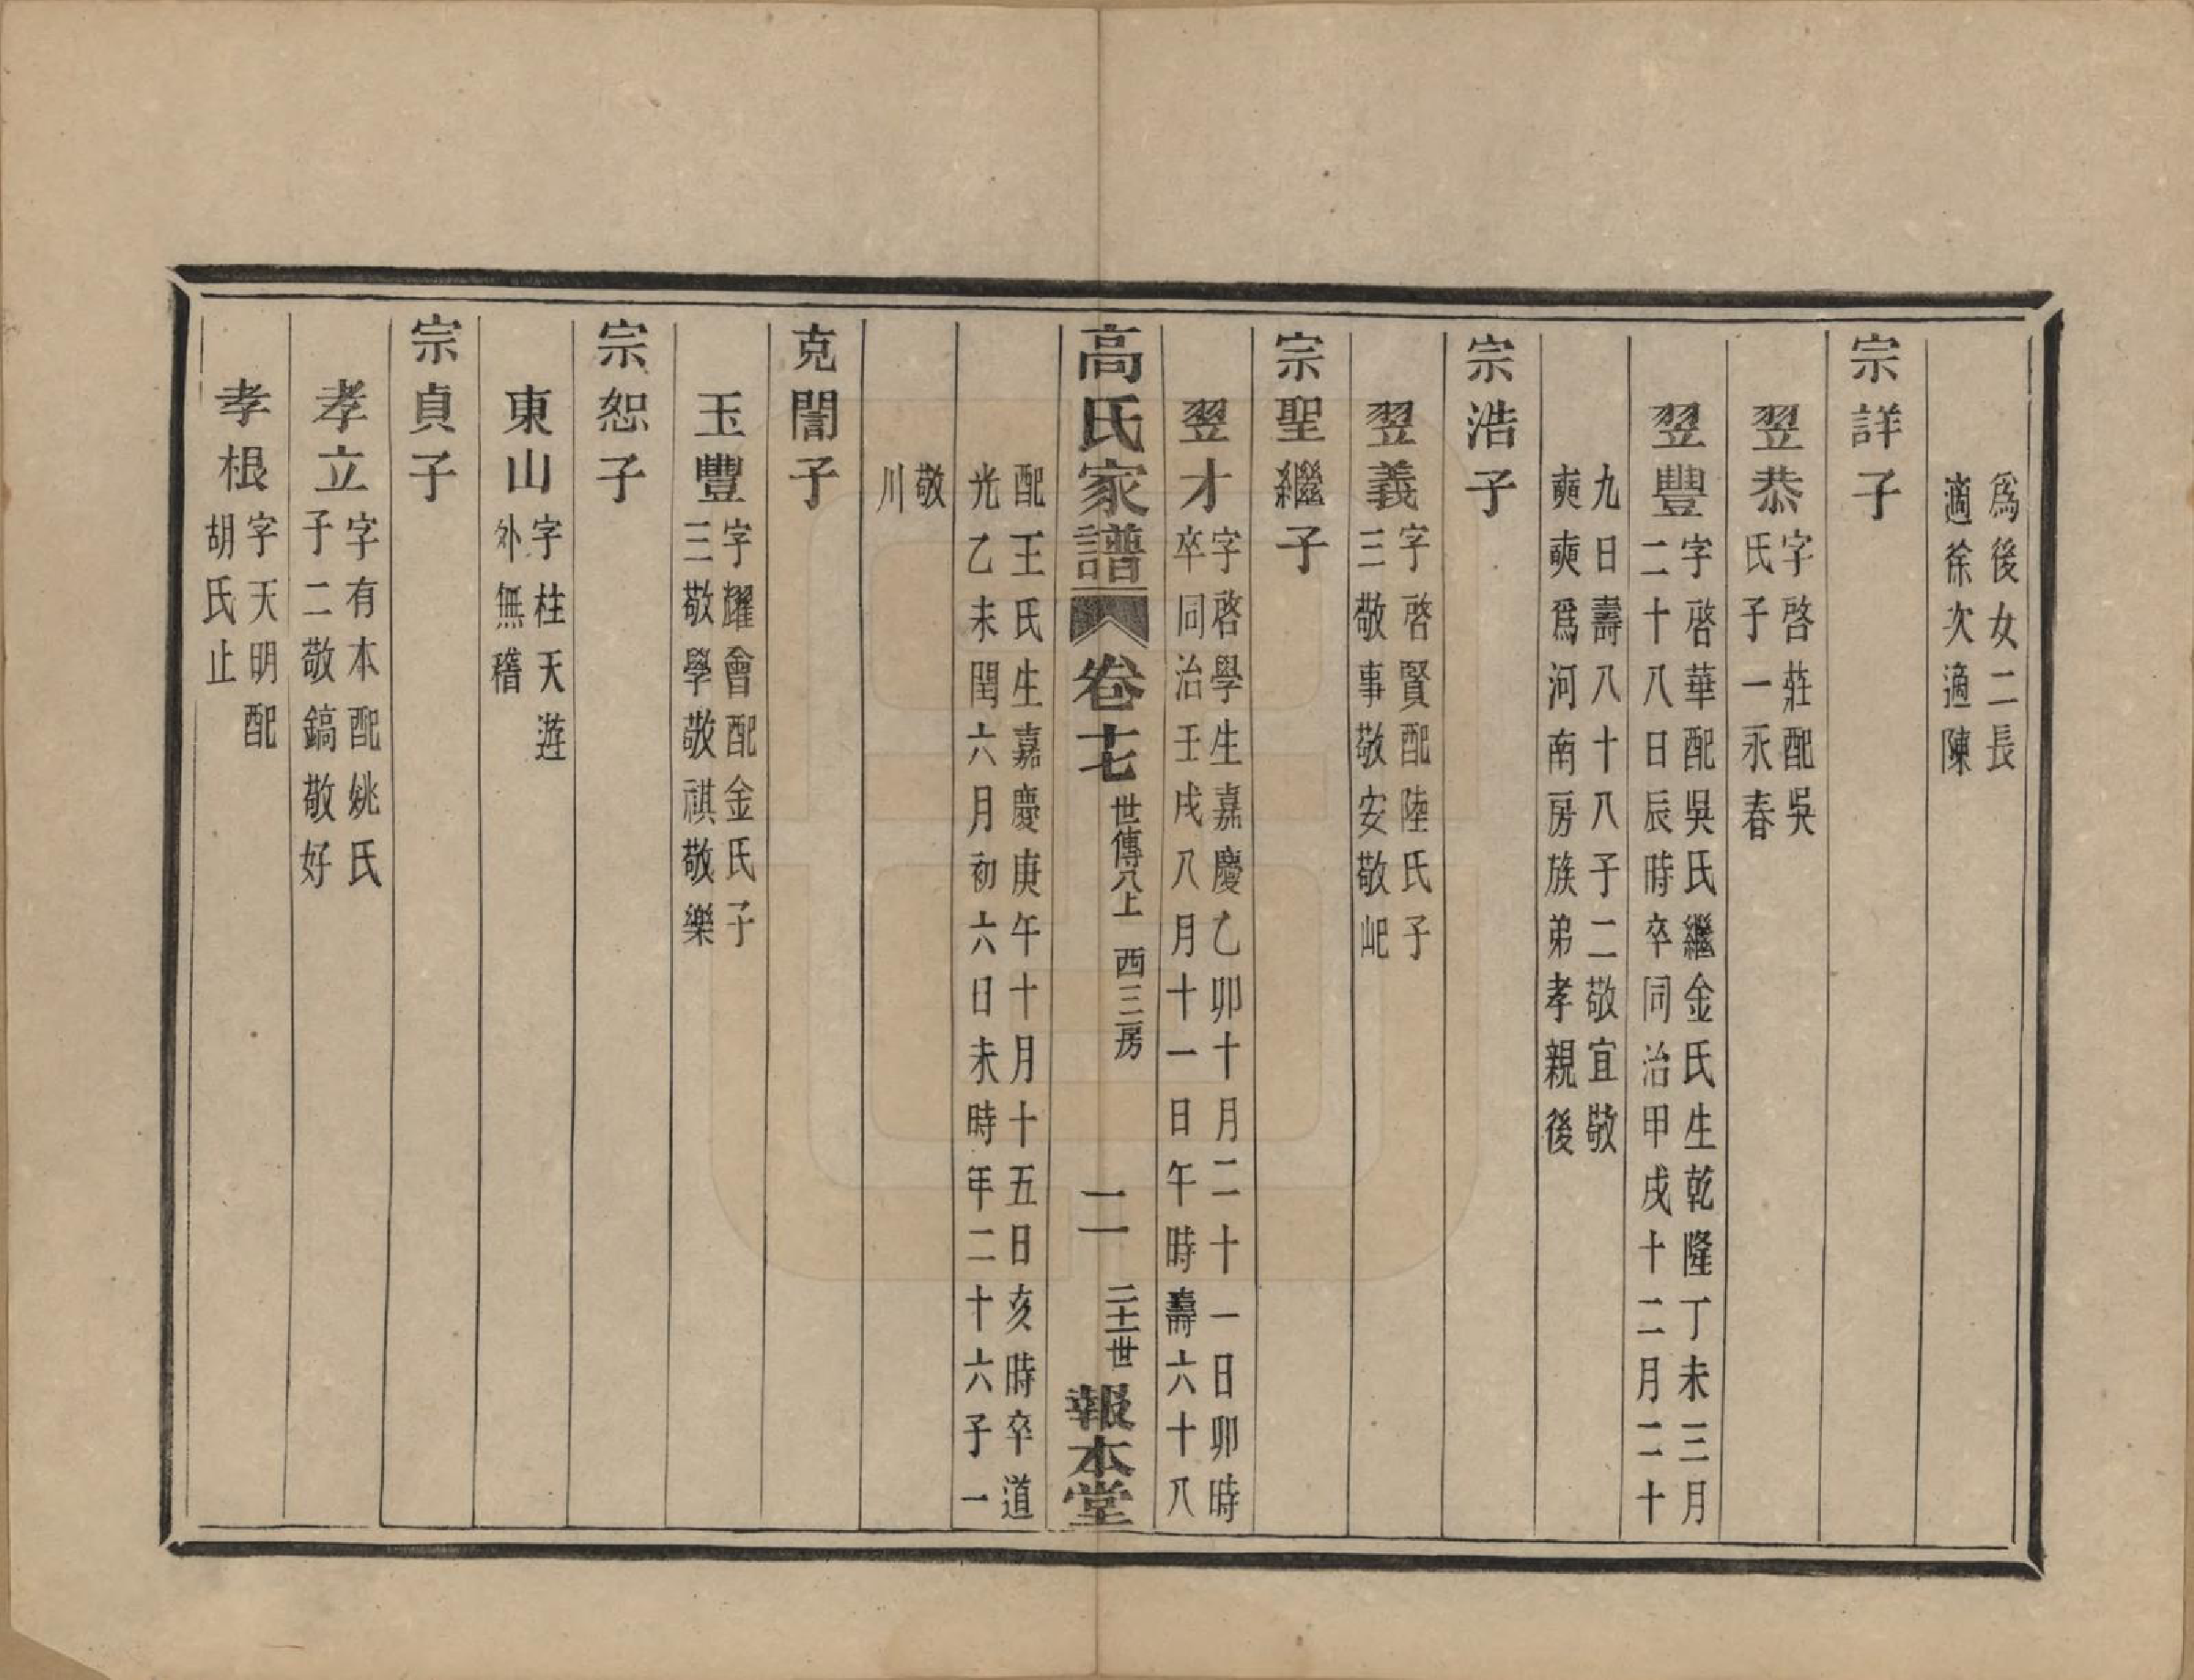 爲後女二長
適徐次適陳
宗詳子
翌恭
字啓莊配吳
氏子一永春
翌豐
字啓華配吳氏繼金氏生乾隆丁未三月
二十八日辰時卒同治甲戌十二月二十
九日壽八十八子二敬宜敬
奭奭爲河南房族弟孝親後
宗浩子
翌義
字啓賢配陸氏子
三敬事敬安敬屺
宗聖繼子
翌才
字啓學生嘉慶乙卯十月二十一日卯時
卒同治壬戌八月十一日午時壽六十八
高氏家譜 卷十七 世傳八上 西三房 二 二十一世 報本堂
配王氏生嘉慶庚午十月十五日亥時卒道
光乙未閏六月初六日未時年二十六子一
敬
川
克誾子
玉豐
字耀會配金氏子
三敬學敬祺敬樂
宗恕子
東山
字柱天遊
外無稽
宗貞子
孝立
字有本配姚氏
子二敬鎬敬好
孝根
字天明配
胡氏止